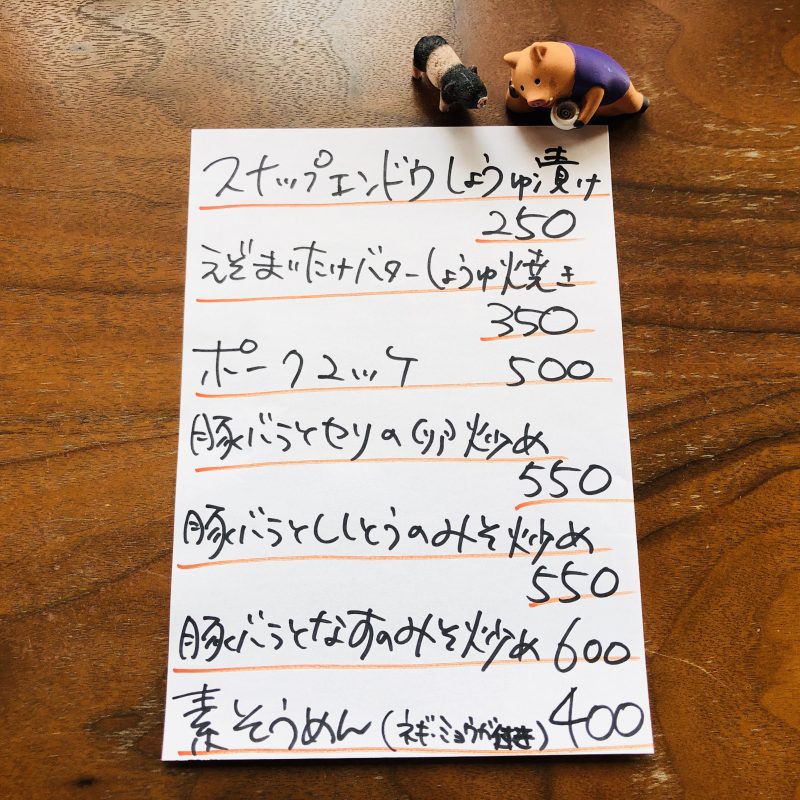 スナップエンドウしょうゆ漬け
250
えぞまいたけバターしょうゆ焼き
350
ポークエッケ 500
豚バラとセリの卵炒め
550
豚バラとししとうのみそ炒め
550
豚バラとなすのみそ炒め 600
素そうめん(ネギ・ミョウガ付き) 400